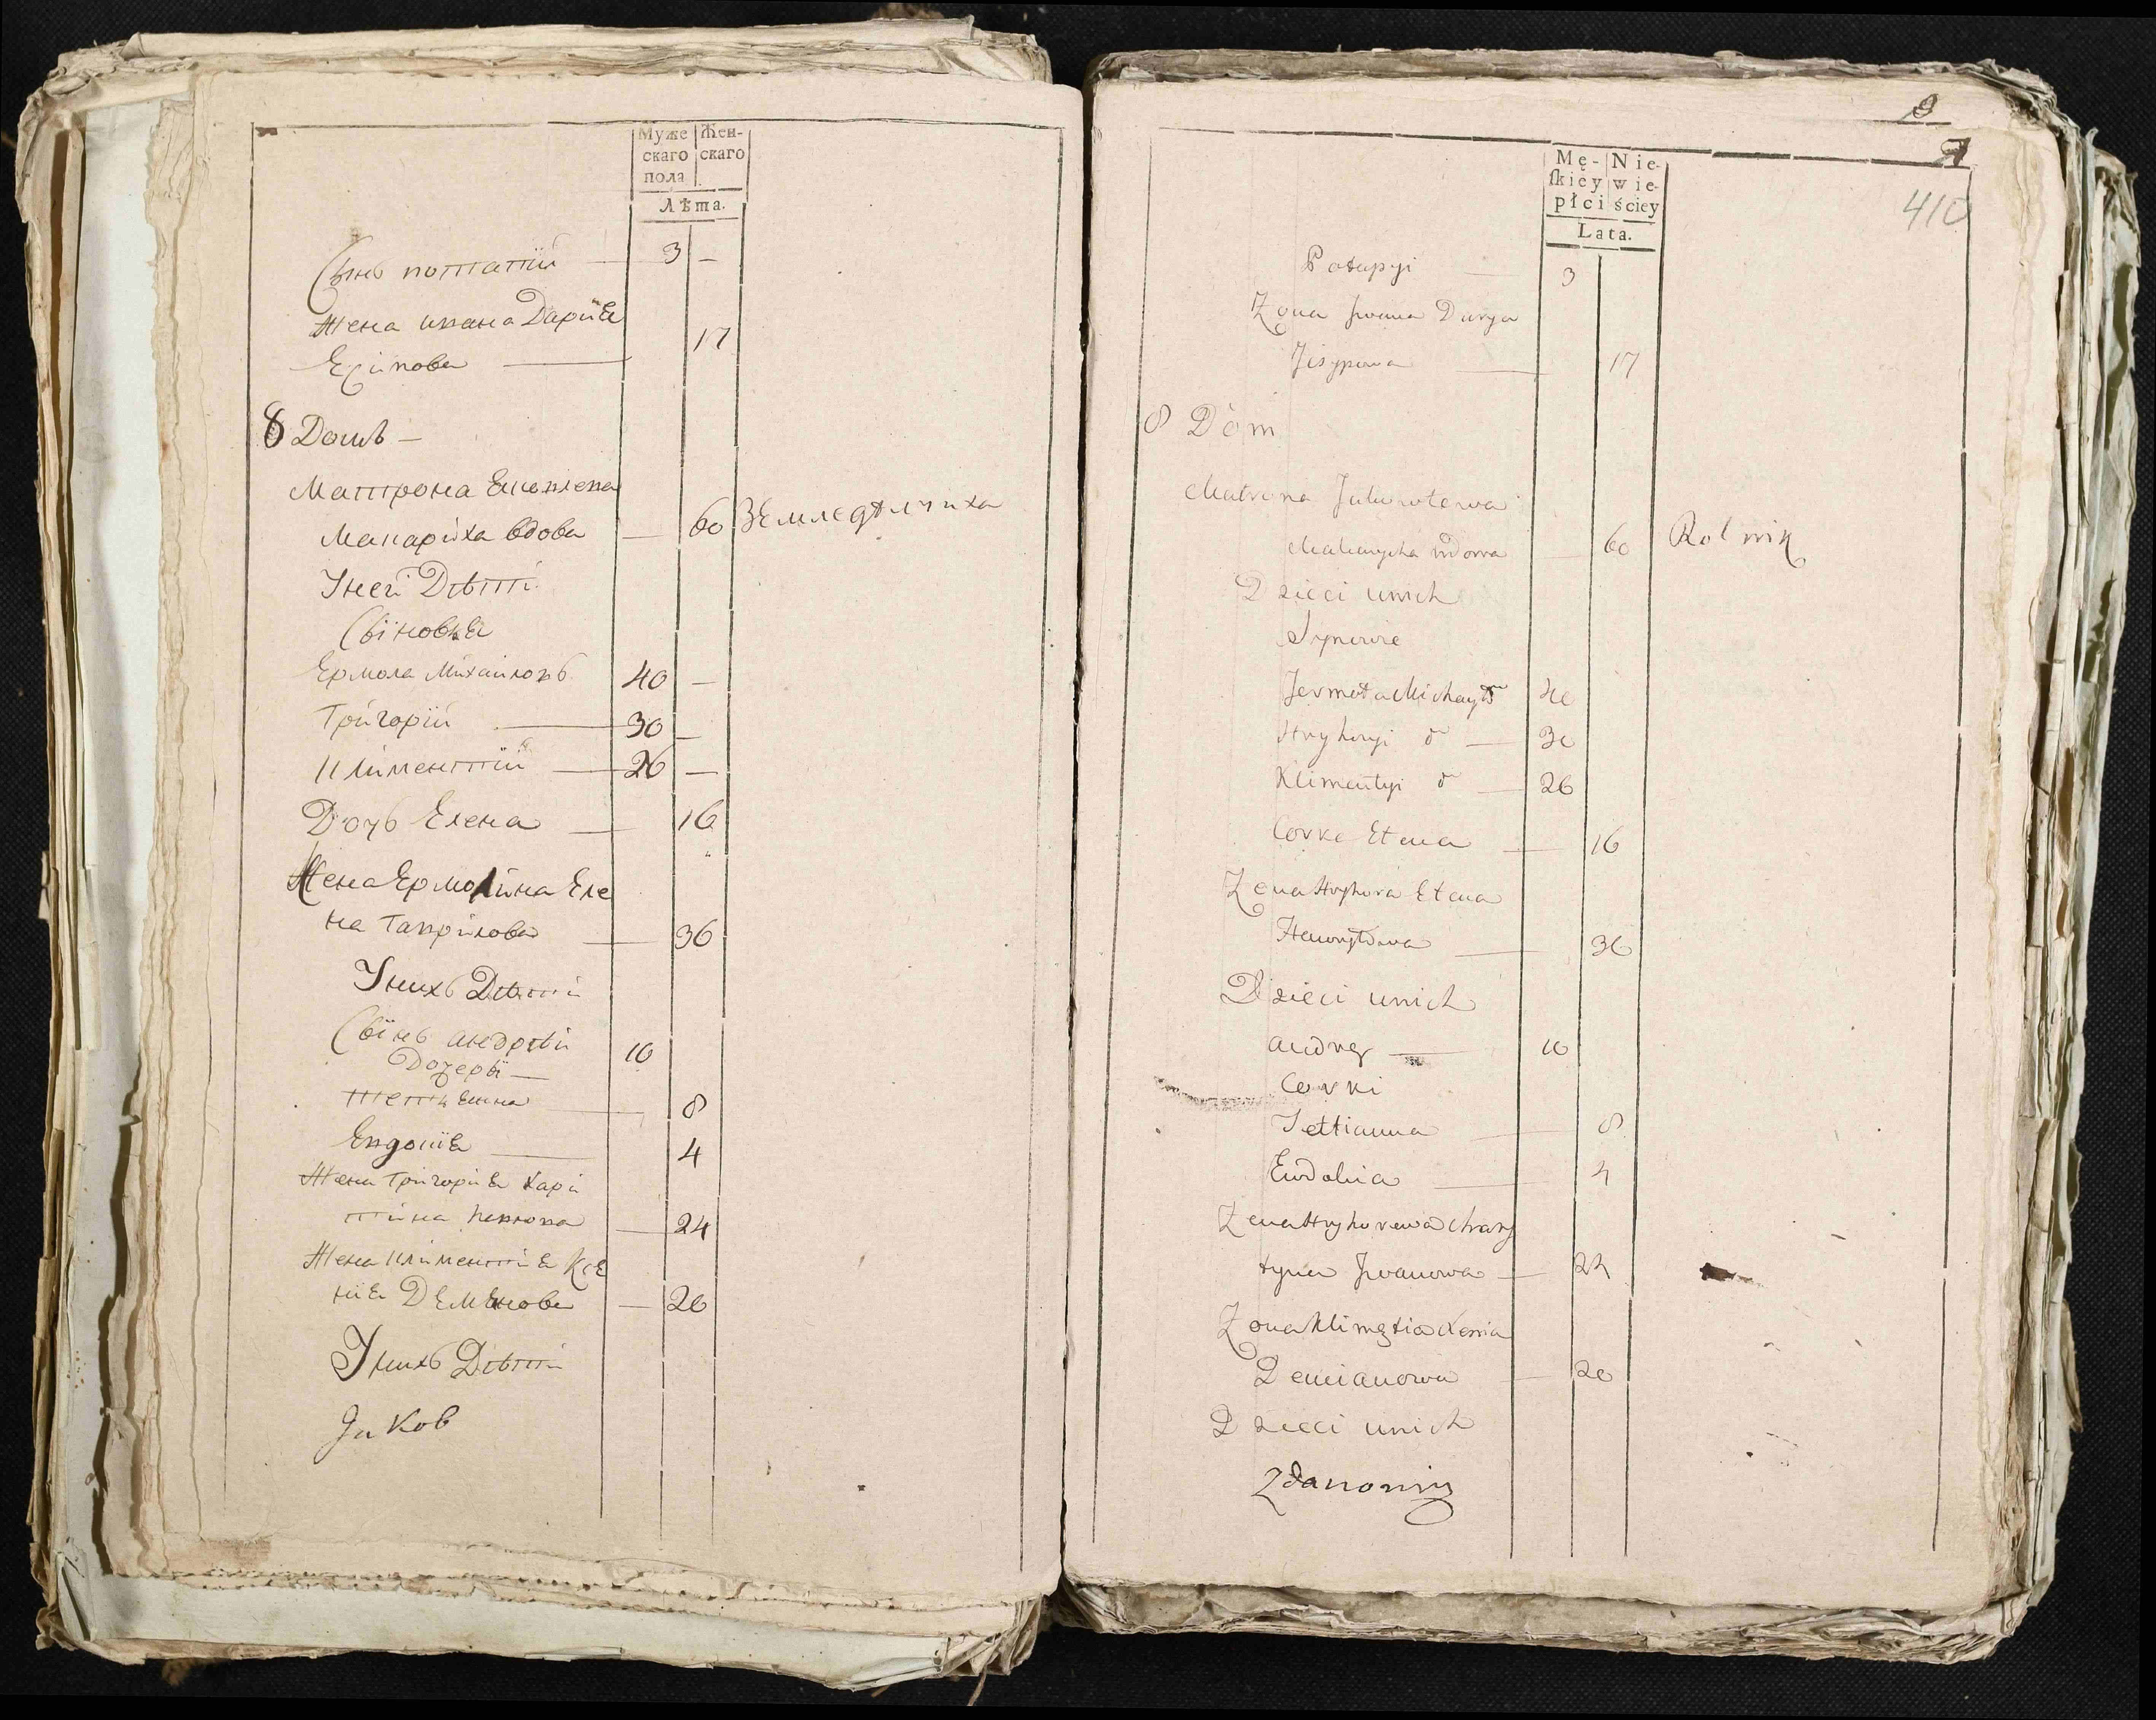 Муже
скаго
пола
Жен-
скаго
Лѣта.
Сынъ потапій — 3 —
Жена ивана Даріѣ
Есіпова — 17
8 Домъ —
Матрона
Макаріха вдова — 60 Земледѣлчиха
Унеи Дѣти
Сыновѣ
Ермола Михайловъ 40 —
Григорій — 30 —
Климентій — 26 —
Дочь Елена — 16
Жена Ермолина Еле
на Гаврилова — 36
Унихъ Дѣти
Сынъ андрѣй 10
Дочеры —
Тетиена — 8
Евдокіѣ — 4
Жена Григоріѣ Хари
тина — 24
Жена Климентіѣ Ксѣ
ніѣ Демѣнова — 20
Унихъ Дѣти
Яков
9
410
Mę-
skiey
płci
Nie-
wie-
ściey
Lata.
Potapyi — 3
Zona Jwana Darya
Jisypowa — 17
8 Dóm
Matrona
Makarycha wdowa — 60 Rolnik
Dzieci unich
Synowie
Jermoła Michayło 40
Hryhoryi d — 30
Klimentyi d — 26
Corka Elena — 16
Zena Hryhora Elena
Hawryłowa — 36
Dzieci unich
Andrey — 10
Corki
Tettianna — 8
Eudokia — 4
Zena Hryhorewa Chary
tyna Jwanowa — 24
Zona Klimętia Xenia
Demianowa — 20
Dzieci unich
Zdanowicz